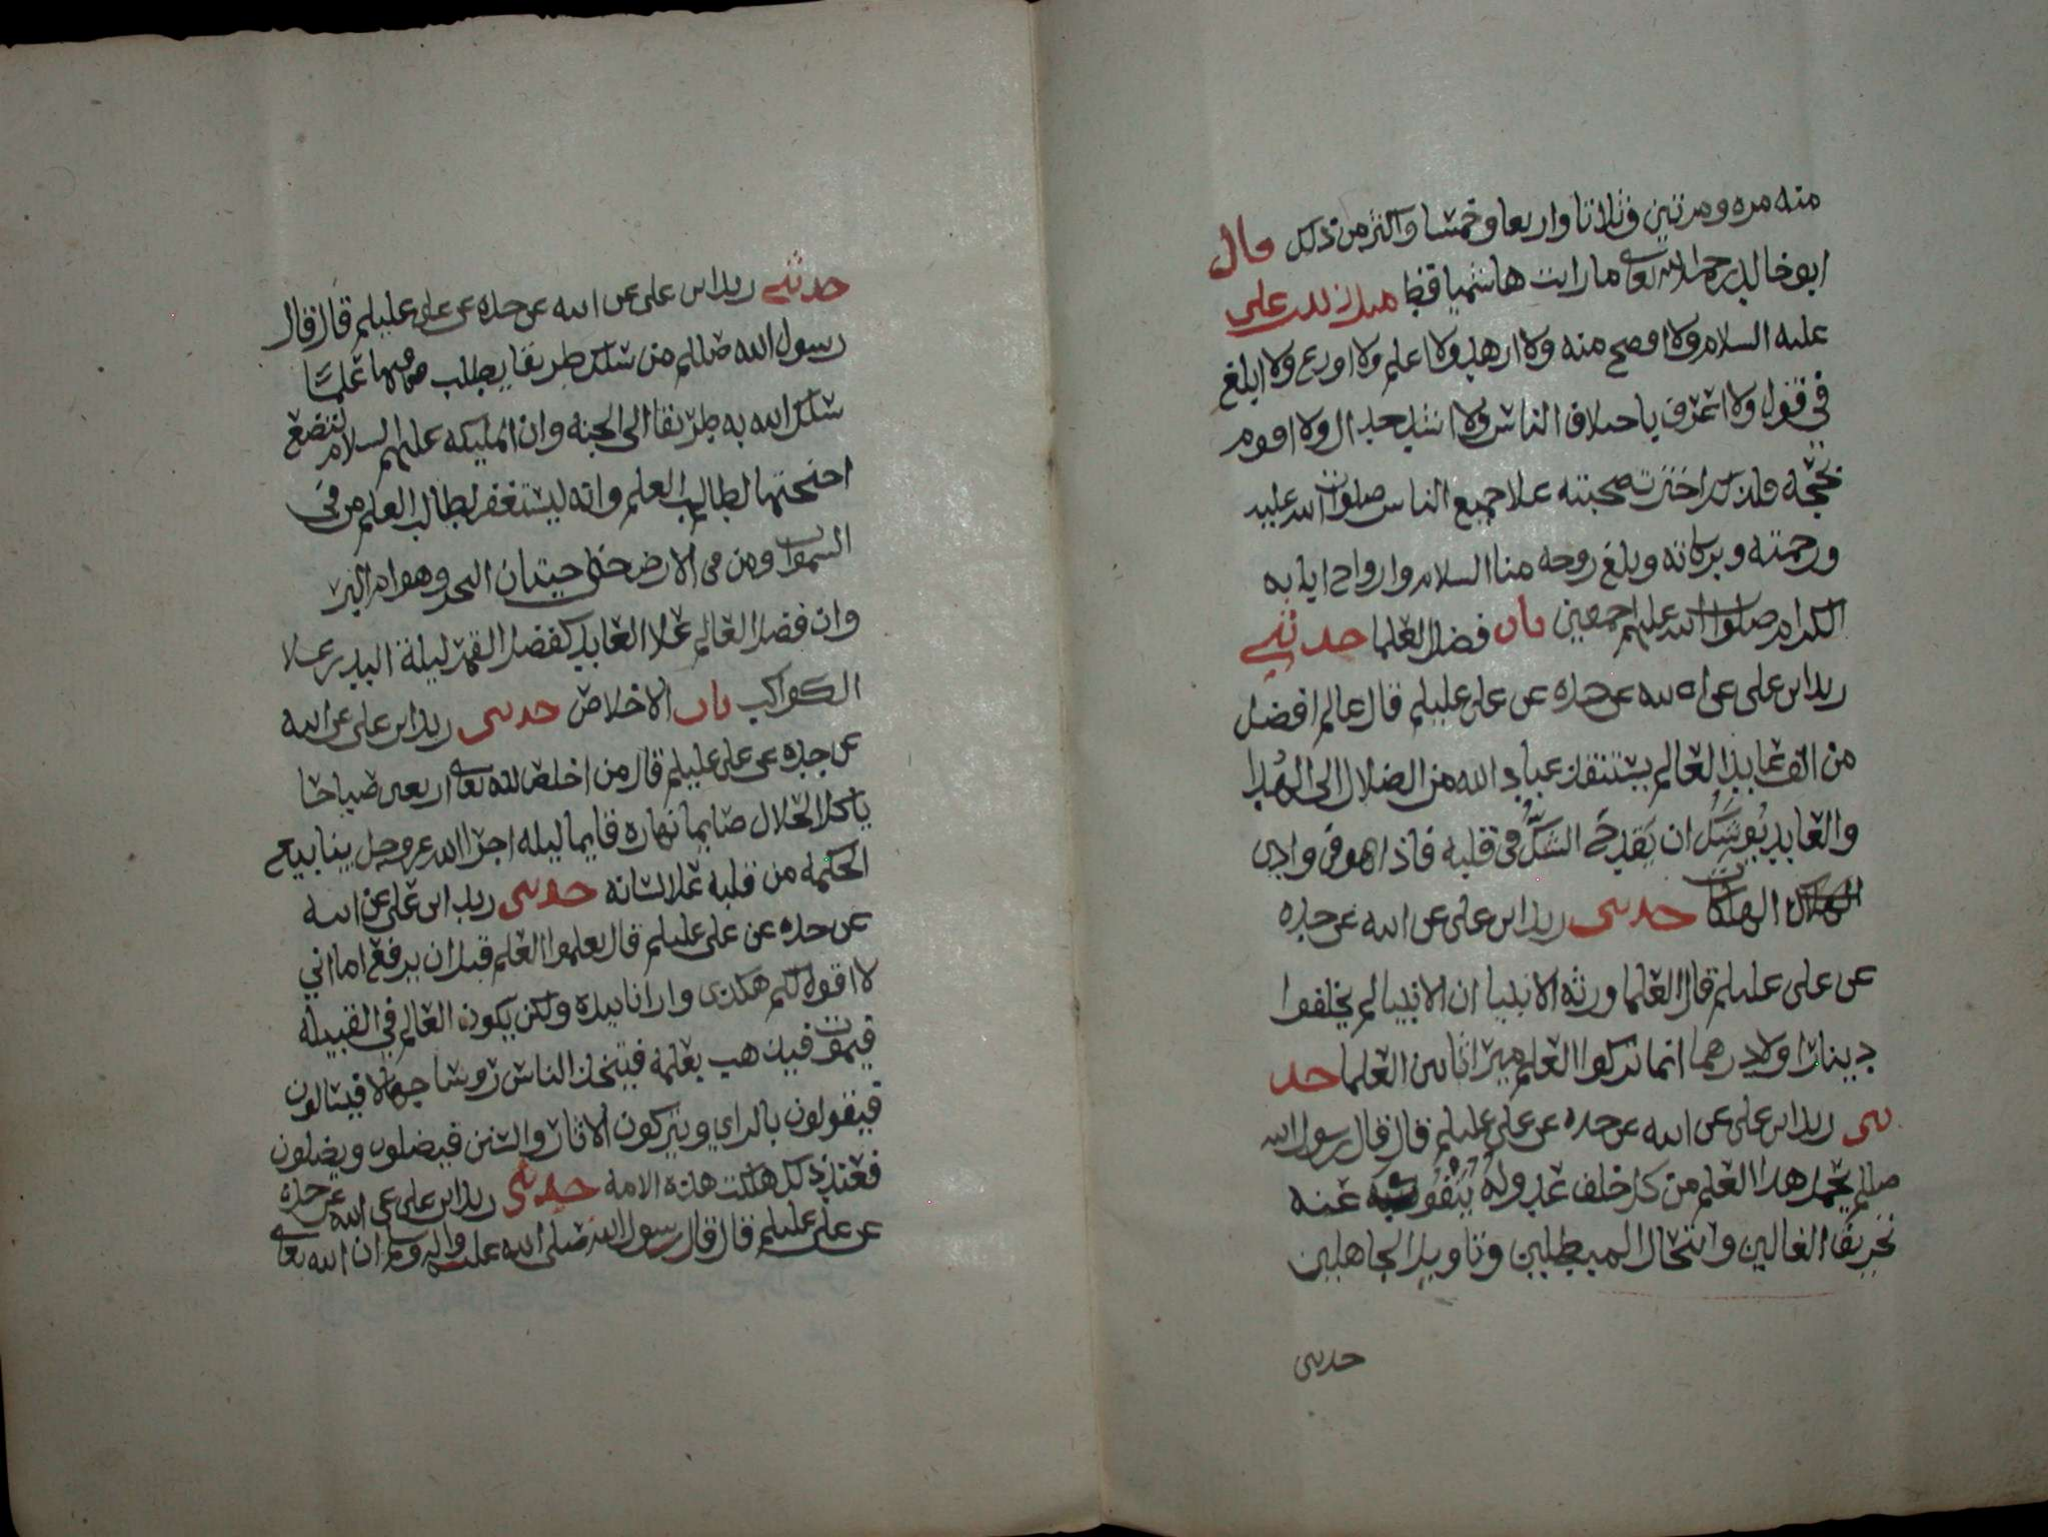 منه مره ومرتين وثلاثا واربعا وخمسا واكثر من ذلك قال
ابو خالد رحمه الله تعالى ما رايت هاشميا قط مثل زيد بن علي
عليه السلام ولا افصح منه ولا ازهد ولا اعلم ولا اورع ولا ابلغ
في قول ولا اعرف باختلاف الناس ولا اشد جدالا ولا اقوم
بحجه فلذلك اخترت صحبته علا جميع الناس صلوات الله عليه
ورحمته وبركاته وبلغ روحه منا السلام وارواح ابايه
الكرام صلوات الله عليهم اجمعين باب فضل العلما حدثني
زيد ابن علي عن ابيه عن جده عن علي عليلم قال عالم افضل
من الف عابد العالم يستنقذ عباد الله من الضلال الى الهدا
والعابد يوشك ان يقدح الشك في قلبه فاذا هو في وادي
الهلكات حدثني زيد ابن علي عن ابيه عن جده
عن علي عليلم قال العلما ورثه الانبيا ان الانبيا لم يخلفوا
دينارا ولا درهما انما تركوا العلم ميراثا بين العلما حد
ثني زيد ابن علي عن ابيه عن جده عن علي عليلم قال قال رسول الله
صللم يحمل هذا العلم من كل خلف عدوله ينفون عنه
تحريف الغالين وانتحال المبطلين وتاويل الجاهلين
حدثني
حدثني زيد ابن علي عن ابيه عن جده عن علي عليلم قال قال
رسول الله صللم من سلك طريقا يطلب فيها علما
سلك الله به طريقا الى الجنه وان المليكه عليهم السلام لتضع
اجنحتها لطالب العلم وانه ليستغفر لطالب العلم من في
السموات ومن في الارض حتى حيتان البحر وهوام البر
وان فضل العالم علا العابد كفضل القمر ليلة البدر علا
الكواكب باب الاخلاص حدثني زيد ابن علي عن ابيه
عن جده عن علي عليلم قال من اخلص لله تعالى اربعين صباحا
ياكل الحلال صايما نهاره قايما ليله اجرا الله عز وجل ينابيع
الحكمه من قلبه علا لسانه حدثني زيد ابن علي عن ابيه
عن جده عن علي عليلم قال تعلموا العلم قبل ان يرفع اما اني
لا اقول لكم هكذى وارانا بيده ولكن يكون العالم في القبيله
فيموت فيذهب بعلمه فيتخذ الناس روسا جهالا فيسالون
فيقولون بالراي ويتركون الاثار والسنن فيضلون ويضلون
فعند ذلك هلكت هذه الامه حدثني زيد ابن علي عن ابيه عن جده
عن علي عليلم قال قال رسول الله صلى الله عليه واله وسلم ان الله تعالى